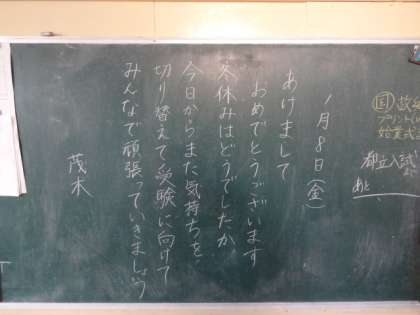 1月8日(金)
あけまして
おめでとうございます
冬休みはどうでしたか
今日からまた気持ちを
切り替えて受験に向けて
みんなで頑張っていきましょう
茂木
国
プリント
始業
都立入試
あと